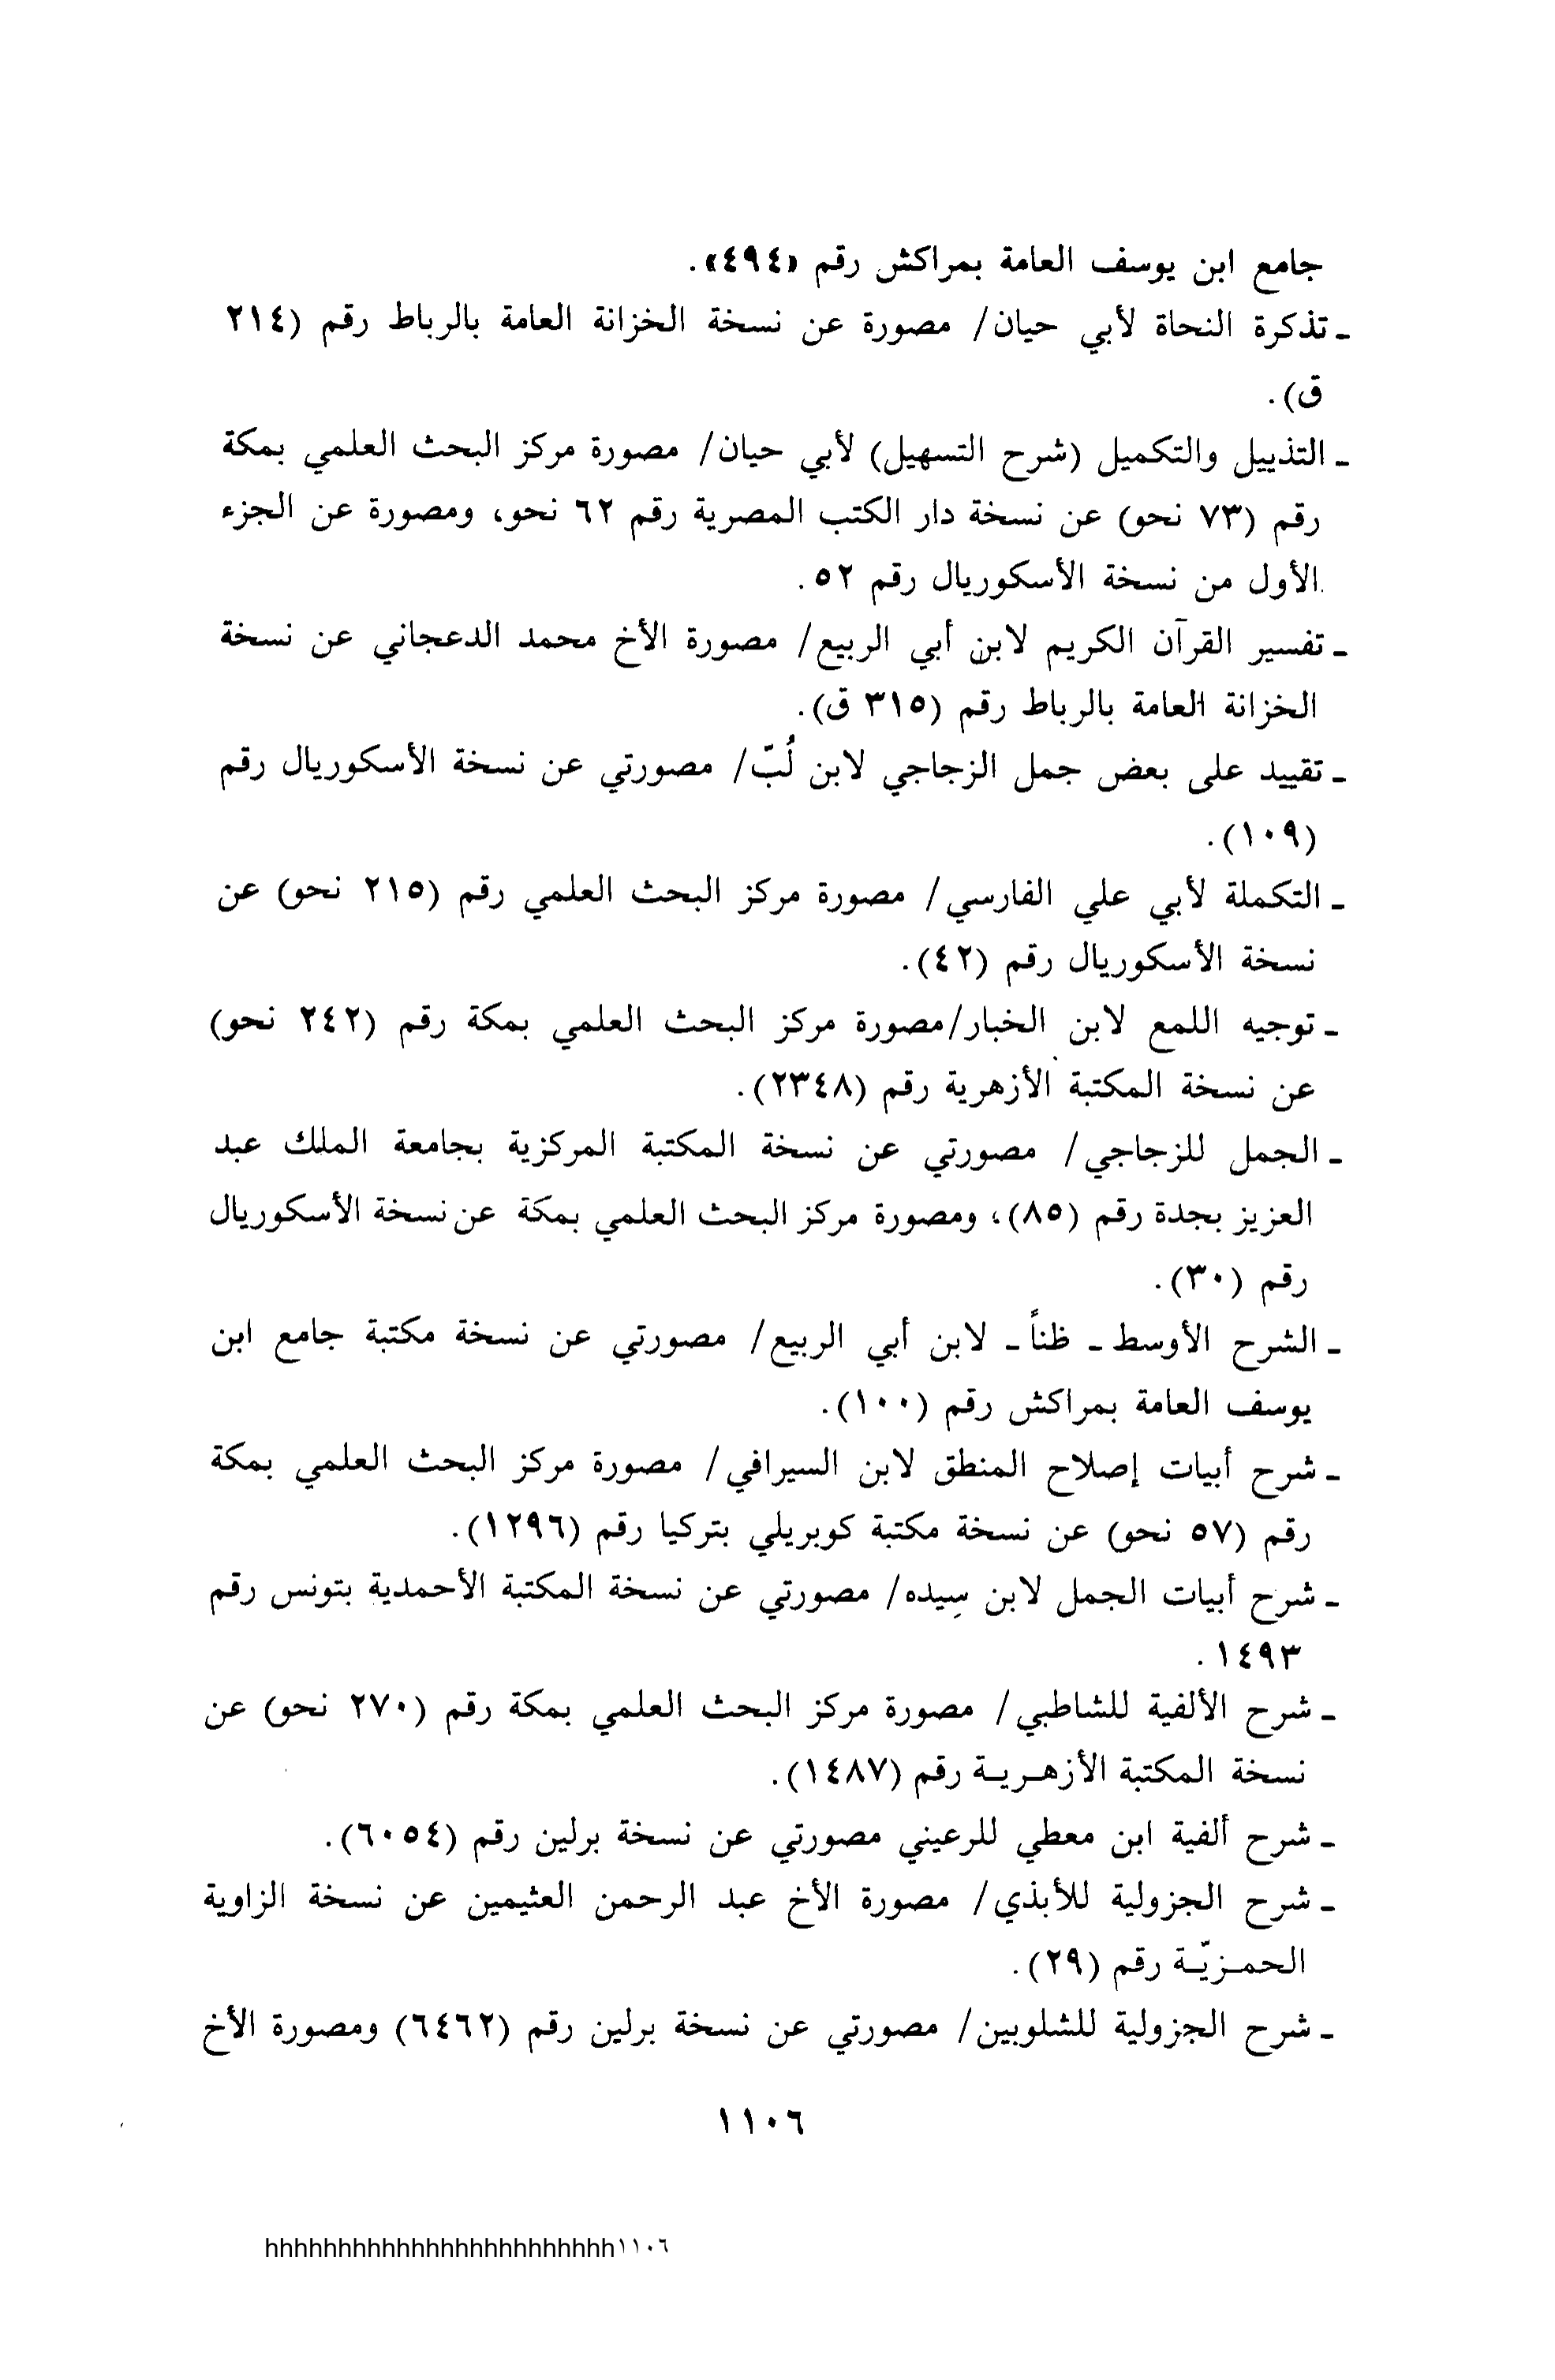 جامع ابن يوسف العامة بمراكش رقم «٤٩٤».
ـ تذكرة النحاة لأبي حيان/ مصورة عن نسخة الخزانة العامة بالرباط رقم (٢١٤
ق).
ـ التذييل والتكميل (شرح التسهيل) لأبي حيان/ مصورة مركز البحث العلمي بمكة
رقم (٧٣ نحو) عن نسخة دار الكتب المصرية رقم ٦٢ نحو، ومصورة عن الجزء
الأول من نسخة الأسكوريال رقم ٥٢.
ـ تفسير القرآن الكريم لابن أبي الربيع/ مصورة الأخ محمد الدعجاني عن نسخة
الخزانة العامة بالرباط رقم (٣١٥ ق).
ـ تقييد على بعض جمل الزجاجي لابن لُبّ/ مصورتي عن نسخة الأسكوريال رقم
(١٠٩).
ـ التكملة لأبي علي الفارسي/ مصورة مركز البحث العلمي رقم (٢١٥ نحو) عن
نسخة الأسكوريال رقم (٤٢).
ـ توجيه اللمع لابن الخبار/مصورة مركز البحث العلمي بمكة رقم (٢٤٢ نحو)
عن نسخة المكتبة الأزهرية رقم (٢٣٤٨).
ـ الجمل للزجاجي/ مصورتي عن نسخة المكتبة المركزية بجامعة الملك عبد
العزيز بجدة رقم (٨٥)، ومصورة مركز البحث العلمي بمكة عن نسخة الأسكوريال
رقم (٣٠).
ـ الشرح الأوسط ـ ظناً ـ لابن أبي الربيع/ مصورتي عن نسخة مكتبة جامع ابن
يوسف العامة بمراكش رقم (١٠٠).
ـ شرح أبيات إصلاح المنطق لابن السيرافي/ مصورة مركز البحث العلمي بمكة
رقم (٥٧ نحو) عن نسخة مكتبة كوبريلي بتركيا رقم (١٢٩٦).
ـ شرح أبيات الجمل لابن سِيده/ مصورتي عن نسخة المكتبة الأحمدية بتونس رقم
١٤٩٣.
ـ شرح الألفية للشاطبي/ مصورة مركز البحث العلمي بمكة رقم (٢٧٠ نحو) عن
نسخة المكتبة الأزهـريـة رقم (١٤٨٧).
ـ شرح ألفية ابن معطي للرعيني مصورتي عن نسخة برلين رقم (٦٠٥٤).
ـ شرح الجزولية للأبذي/ مصورة الأخ عبد الرحمن العثيمين عن نسخة الزاوية
الحمـزيّـة رقم (٢٩).
ـ شرح الجزولية للشلوبين/ مصورتي عن نسخة برلين رقم (٦٤٦٢) ومصورة الأخ
١١٠٦
hhhhhhhhhhhhhhhhhhhhhhhh١١٠٦